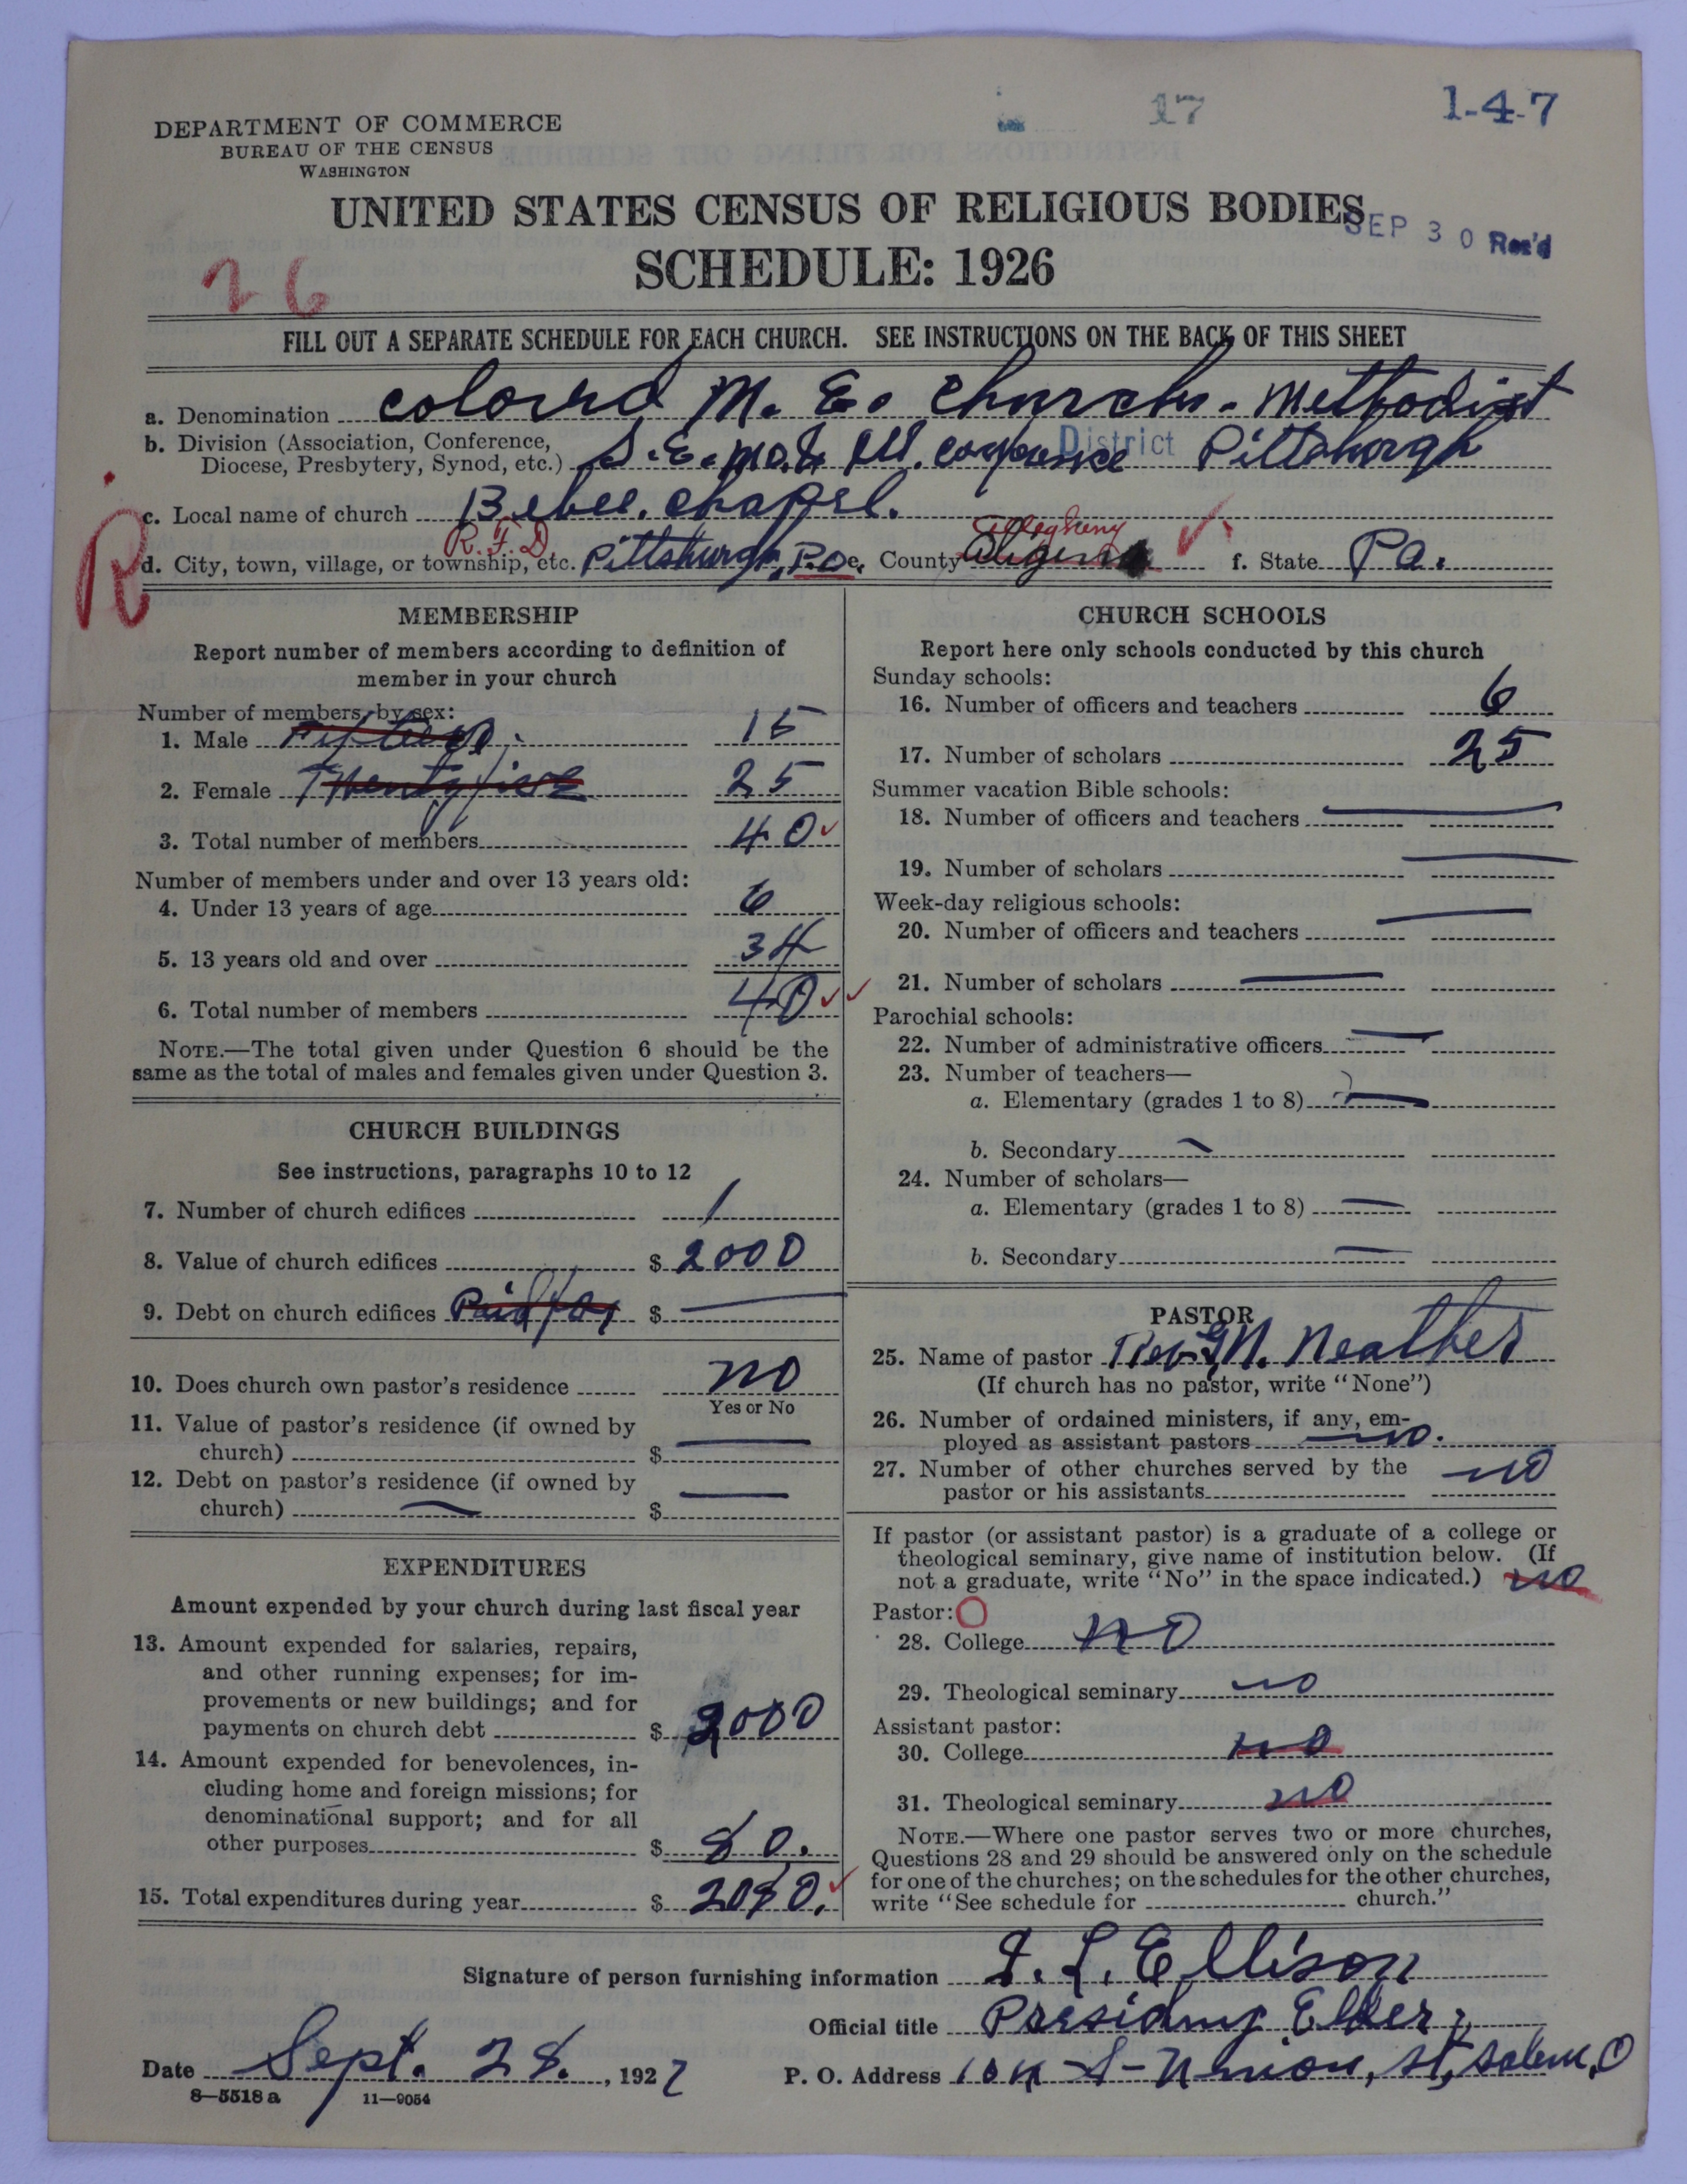 17
1-4-7
DEPARTMENT OF COMMERCE
BUREAU OF THE CENSUS
WASHINGTON
UNITED STATES CENSUS OF RELIGIOUS BODIES
SEP 30 Rec'd
SCHEDULE: 1926
26
FILL OUT A SEPARATE SCHEDULE FOR EACH CHURCH. SEE INSTRUCTIONS ON THE BACK OF THIS SHEET
a. Denomination Colourd M. E. Church - Methodist
b. Division (Association, Conference,
Diocese, Presbytery, Synod, etc.) S. E. Mo. & Ill. District Pittsburgh
R
c. Local name of church Bebee. Chapel.
R.F.D. Allegheny
d. City, town, village, or township, etc. Pittsburgh, P.O. e. County f. State Pa.
MEMBERSHIP
Report number of members according to definition of
member in your church
Number of members, by sex:
1. Male Fifteen 15
2. Female Twenty five 25
3. Total number of members 40
Number of members under and over 13 years old:
4. Under 13 years of age 6
5. 13 years old and over 34
6. Total number of members 40
NOTE.—The total given under Question 6 should be the
same as the total of males and females given under Question 3.
CHURCH BUILDINGS
See instructions, paragraphs 10 to 12
7. Number of church edifices 1
8. Value of church edifices $ 2000
9. Debt on church edifices Paid for $ —
10. Does church own pastor's residence no
Yes or No
11. Value of pastor's residence (if owned by
church) $ —
12. Debt on pastor's residence (if owned by
church) — $ —
EXPENDITURES
Amount expended by your church during last fiscal year
13. Amount expended for salaries, repairs,
and other running expenses; for im-
provements or new buildings; and for
payments on church debt $ 2000
14. Amount expended for benevolences, in-
cluding home and foreign missions; for
denominational support; and for all
other purposes $ 80.
15. Total expenditures during year $ 2080.
CHURCH SCHOOLS
Report here only schools conducted by this church
Sunday schools:
16. Number of officers and teachers 6
17. Number of scholars 25
Summer vacation Bible schools:
18. Number of officers and teachers —
19. Number of scholars —
Week-day religious schools:
20. Number of officers and teachers —
21. Number of scholars —
Parochial schools:
22. Number of administrative officers —
23. Number of teachers—
a. Elementary (grades 1 to 8) —
b. Secondary —
24. Number of scholars—
a. Elementary (grades 1 to 8) —
b. Secondary —
PASTOR
25. Name of pastor Rev. G. N. Neather
(If church has no pastor, write "None")
26. Number of ordained ministers, if any, em-
ployed as assistant pastors no.
27. Number of other churches served by the
pastor or his assistants no
If pastor (or assistant pastor) is a graduate of a college or
theological seminary, give name of institution below. (If
not a graduate, write "No" in the space indicated.) no
Pastor: O
28. College no
29. Theological seminary no
Assistant pastor:
30. College no
31. Theological seminary no
NOTE.—Where one pastor serves two or more churches,
Questions 28 and 29 should be answered only on the schedule
for one of the churches; on the schedules for the other churches,
write "See schedule for church."
Signature of person furnishing information I. L. Ellison
Official title Presiding Elder,
Date Sept. 28., 1927 P. O. Address S- Union, St, Salem, O
8—5518 a 11—9054